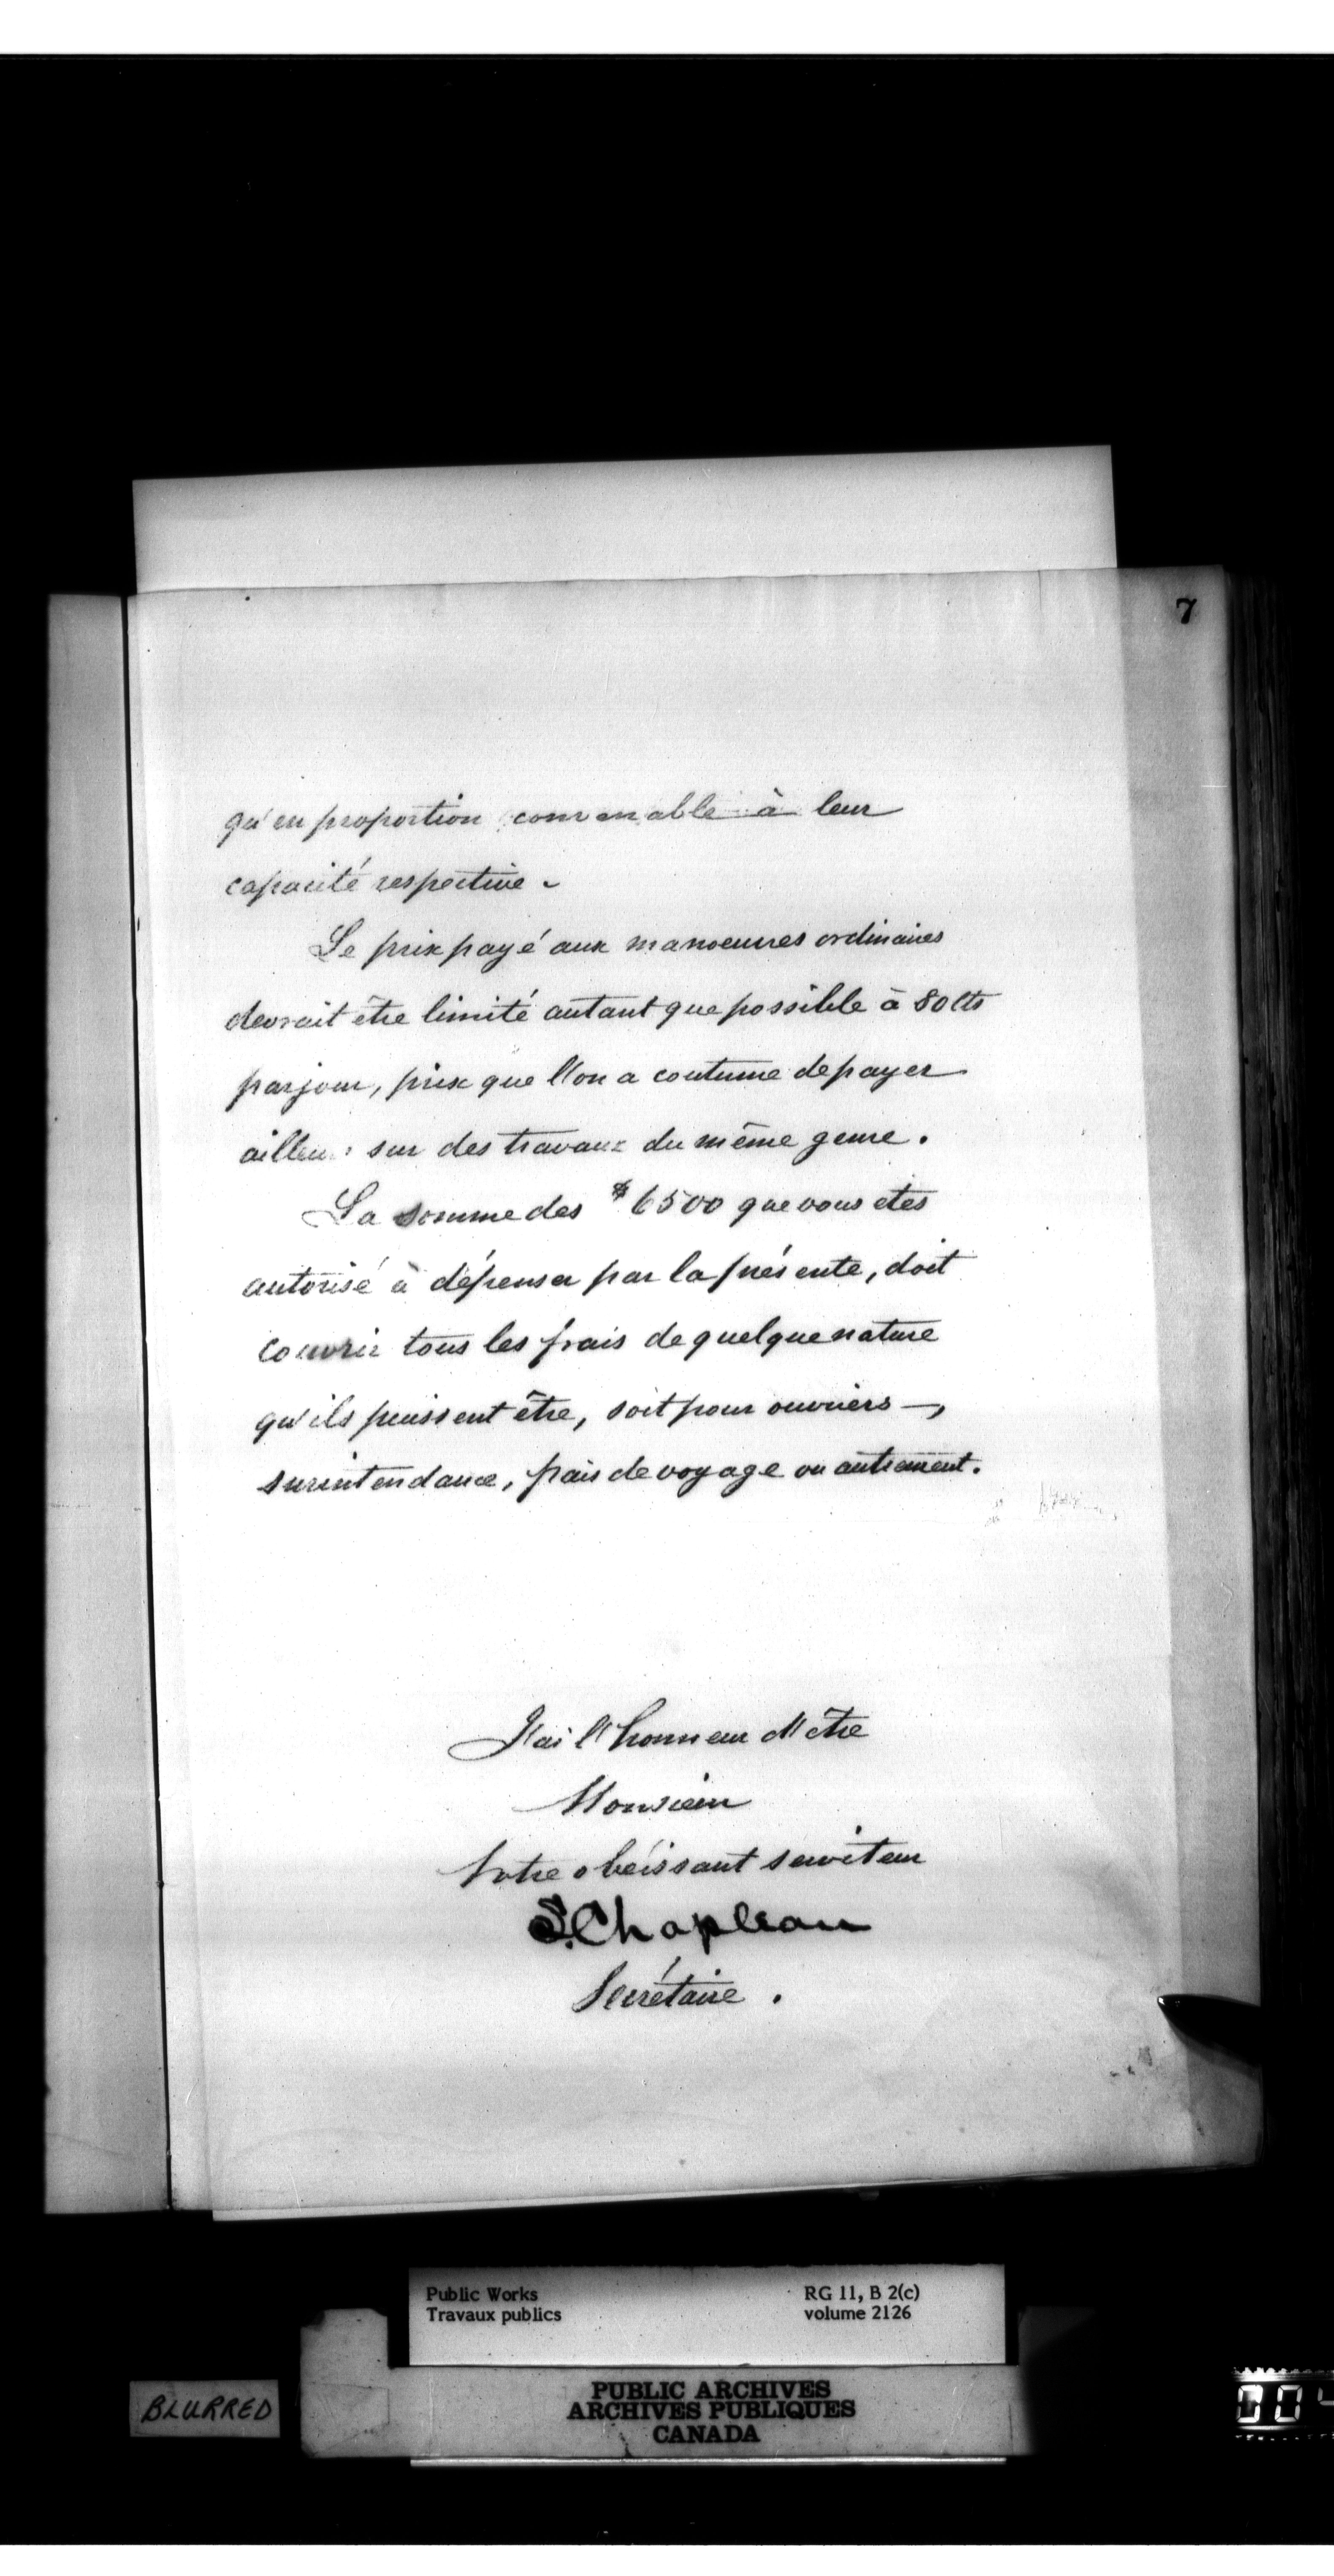 7
qu'en proportion convenable à leur
capacité respective -
Le prix payé aux manoeuvres ordinaires
devrait être limité autant que possible à 80 cts
par jour, prix que l'on a coutume de payer
ailleurs sur des travaux du même genre.
La somme des $6500 que vous etes
autorisé à dépenser par la présente, doit
couvrir tous les frais de quelque nature
qu'ils puissent être, soit pour ouvriers -,
surintendance, frais de voyage ou autrement.
J'ai l'honneur d'être
Monsieur
Votre obéissant serviteur
S. Chapleau
Secrétaire.
Public Works RG 11, B 2(c)
Travaux publics volume 2126
BLURRED
PUBLIC ARCHIVES
ARCHIVES PUBLIQUES
CANADA